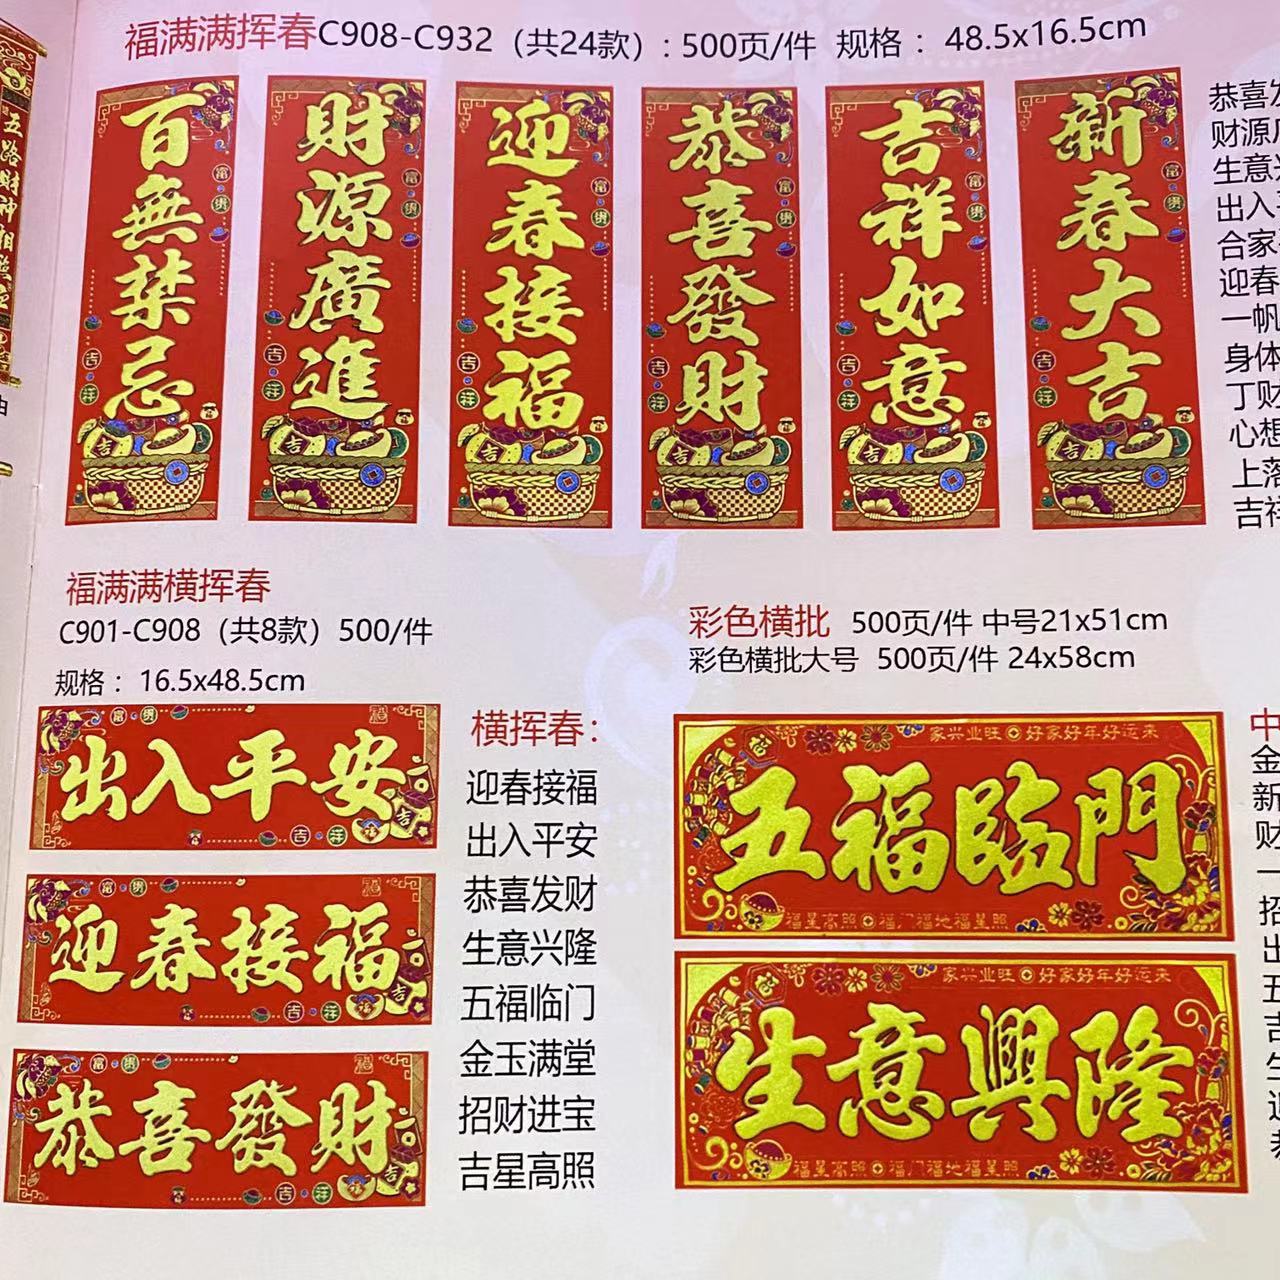 福满满挥春C908-C932（共24款）: 500页/件 规格： 48.5x16.5cm
百無禁忌
財源廣進
迎春接福
恭喜發財
吉祥如意
新春大吉
富貴
吉祥
恭喜
财源
生意
出入
合家
迎春
一帆
身体
丁财
心想
上落
吉祥
五路財神
福满满横挥春
C901-C908（共8款）500/件
规格： 16.5x48.5cm
出入平安
迎春接福
恭喜發財
横挥春：
迎春接福
出入平安
恭喜发财
生意兴隆
五福临门
金玉满堂
招财进宝
吉星高照
彩色横批 500页/件 中号21x51cm
彩色横批大号 500页/件 24x58cm
家兴业旺 好家好年好运来
五福臨門
福星高照 福门福地福星照
家兴业旺 好家好年好运来
生意興隆
福星高照 福门福地福星照
中
金
新
财
一
招
出
五
吉
生
迎
恭